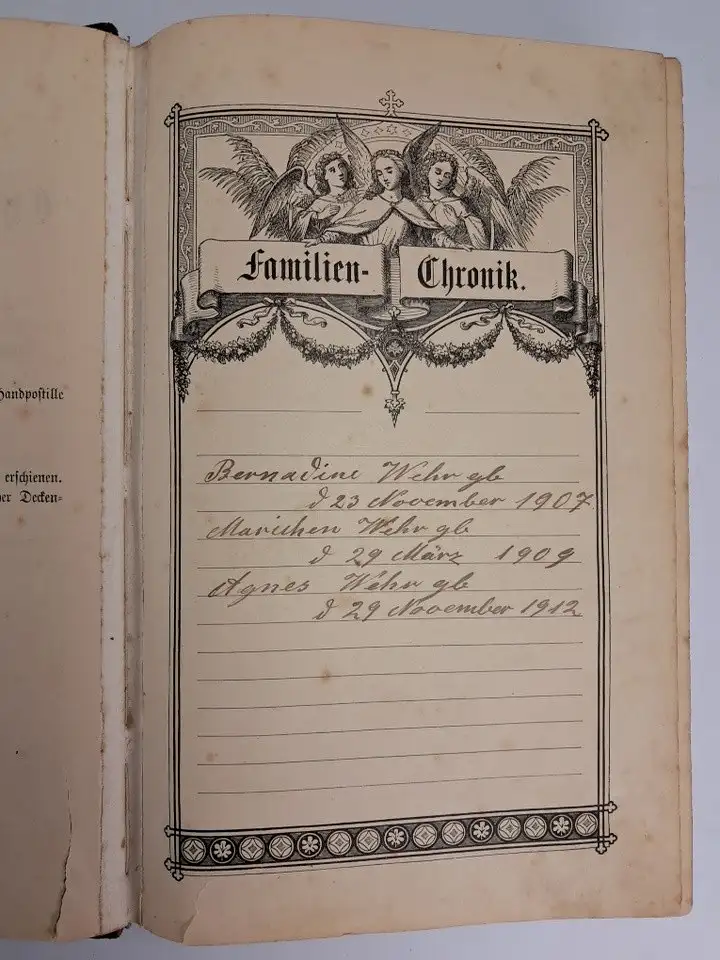 Handpostille
erschienen.
er Decken-
Familien-Chronik.
Bernadine Wehr gb
d 23 November 1907
Mariechen Wehr gb
d 29 März 1909
Agnes Wehr gb
d 29 November 1912